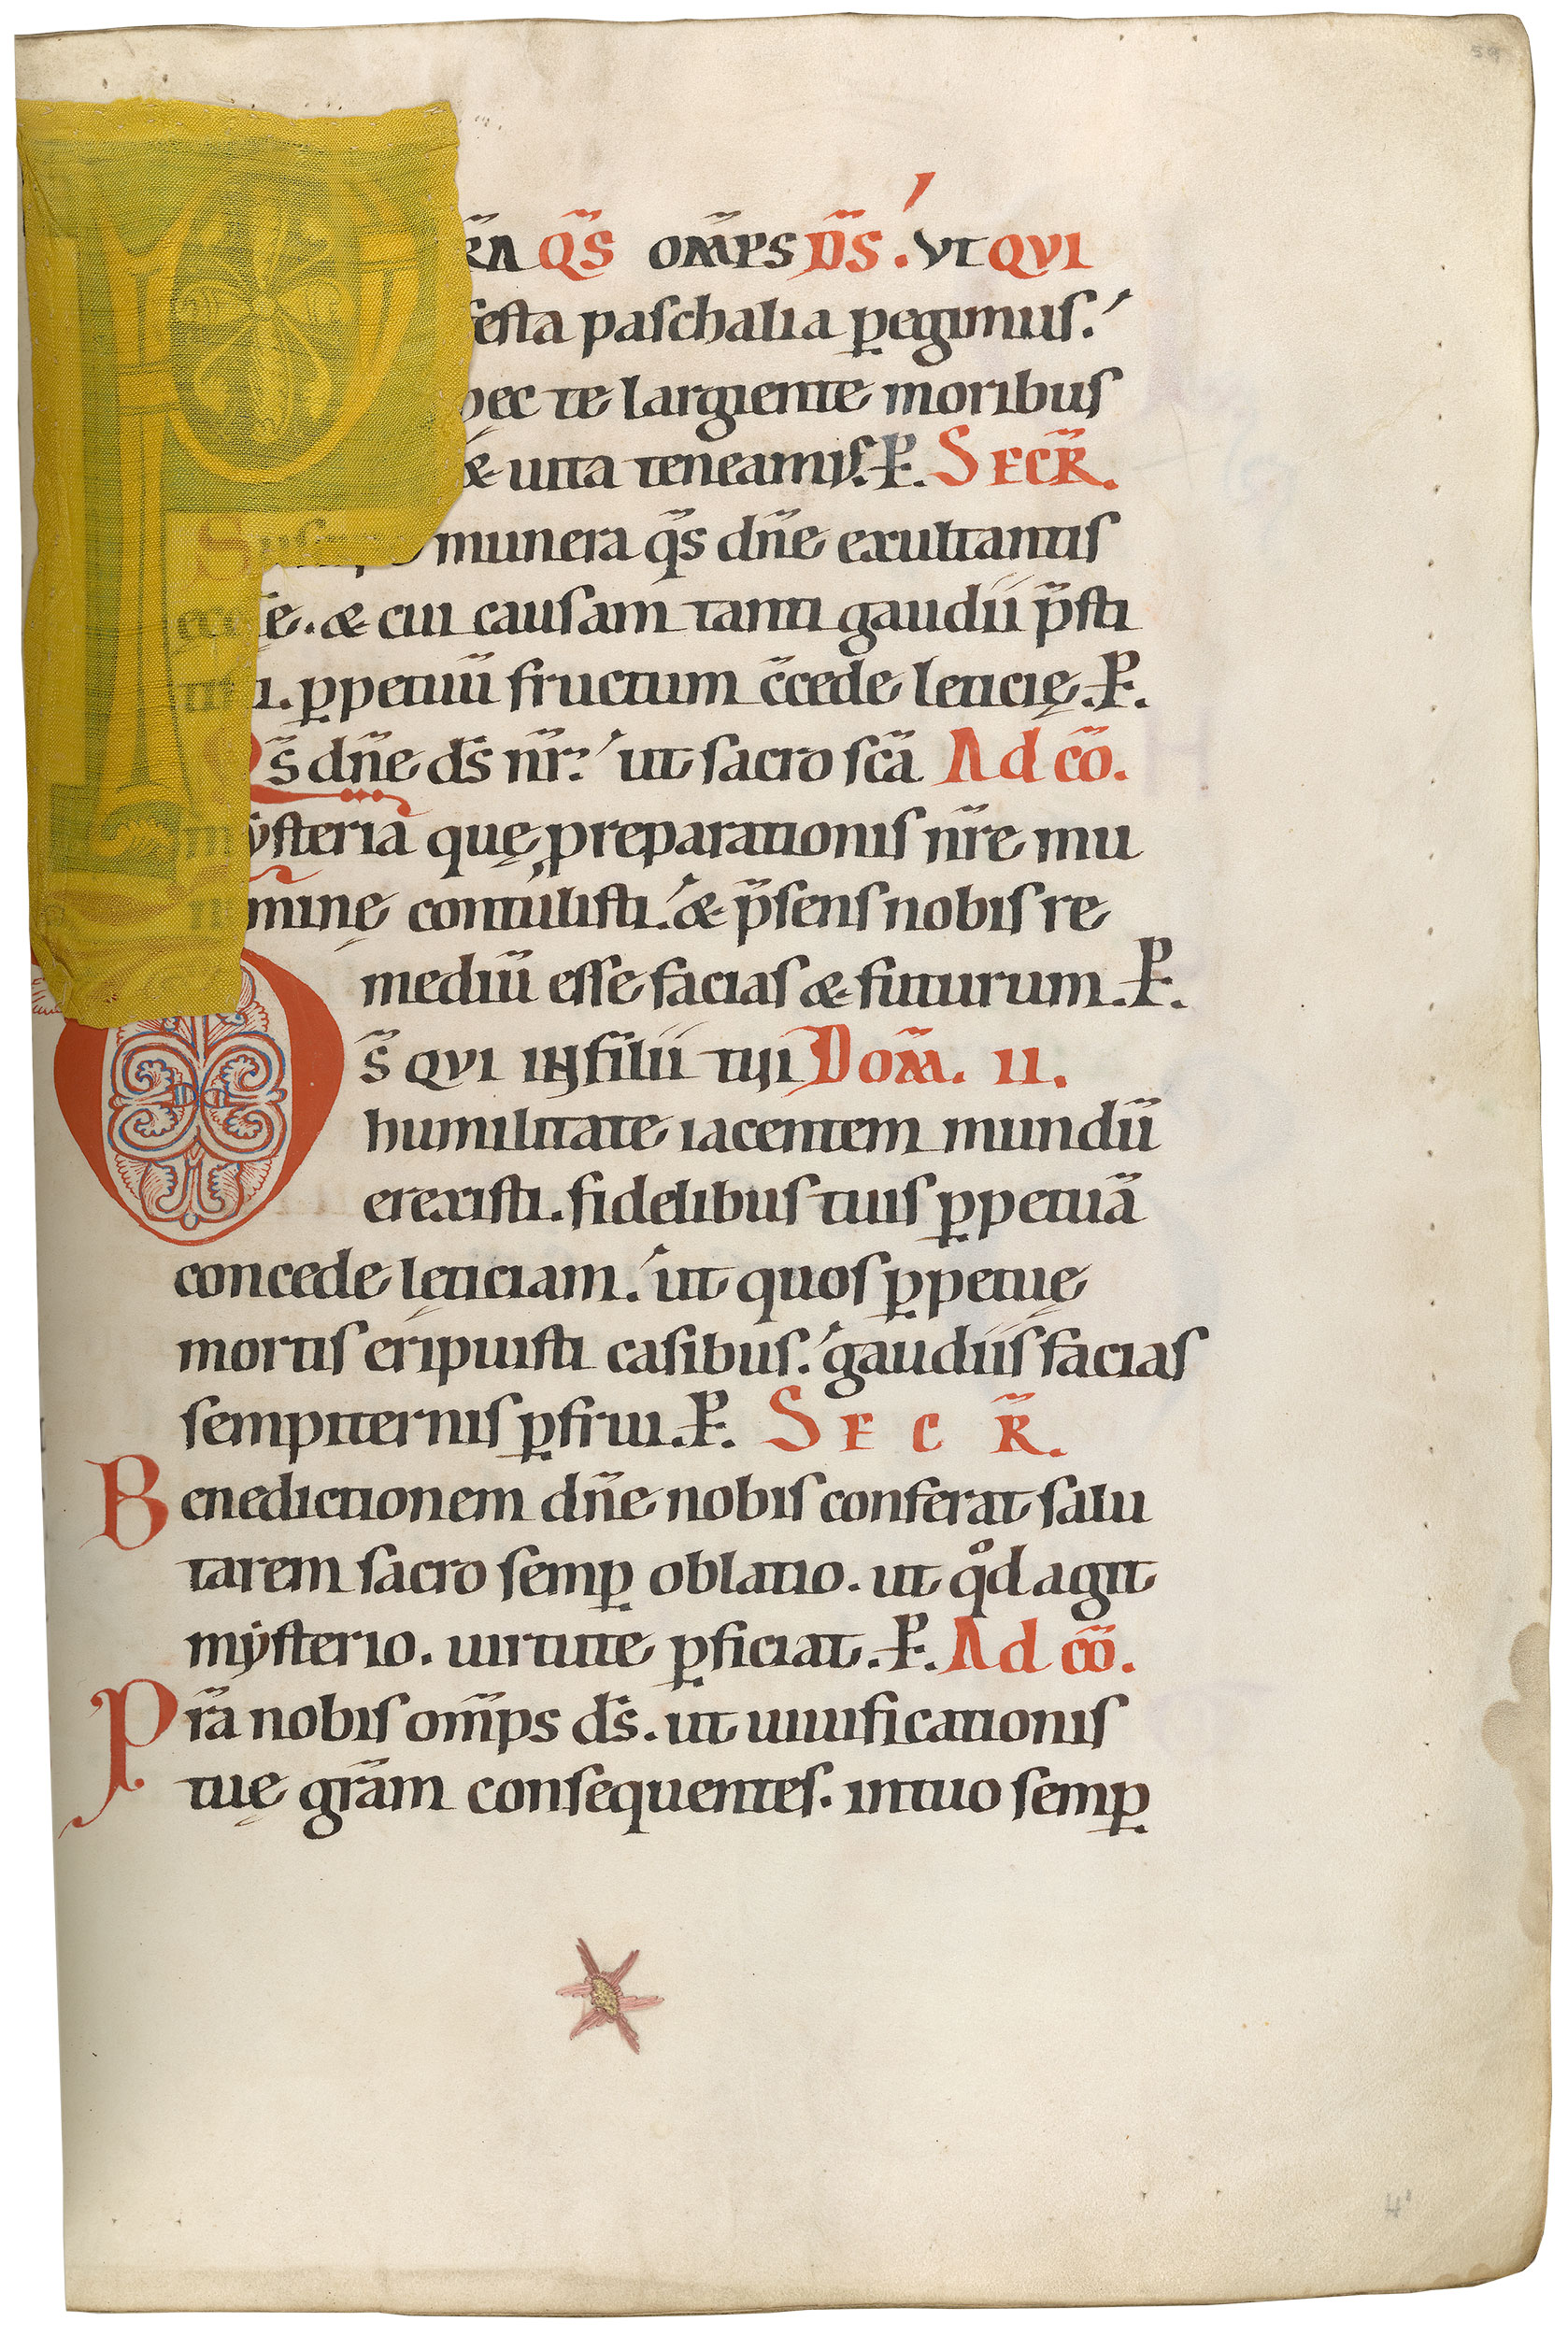 r̄A Q̄S OM̄PS D̄S. VT QVI
festa paschalia p̲egimus.
hec te largiente moribus
& uita teneamus. P. SECR̄.
munera q̄s dn̄e exultantis
e. & cui causam tanti gaudii p̄sti
p̲petuū fructum c̄cede leticię. P.
Q̄s dn̄e ds̄ nr̄. ut sacro sc̄a Ad cō.
mysteria quę preparationis nr̄e mu
nimine contulisti. & p̄sens nobis re
mediū esse facias & futurum. P.
S̄ QVI IN filii tui DOM̄. II.
humilitate iacentem mundū
erexisti. fidelibus tuis p̲petuā
concede lęticiam. ut quos p̲petuę
mortis eripuisti casibus. gaudiis facias
sempiternis p̲frui. P. SECR̄.
Benedictionem dn̄e nobis conferat salu
tarem sacro semp̲ oblatio. ut qͦd agit
mẏsterio. uirtute p̲ficiat. P. Ad cō.
Pr̄a nobis om̄ps ds̄. ut uiuificationis
tuę gr̄am consequentes. in tuo semp̲